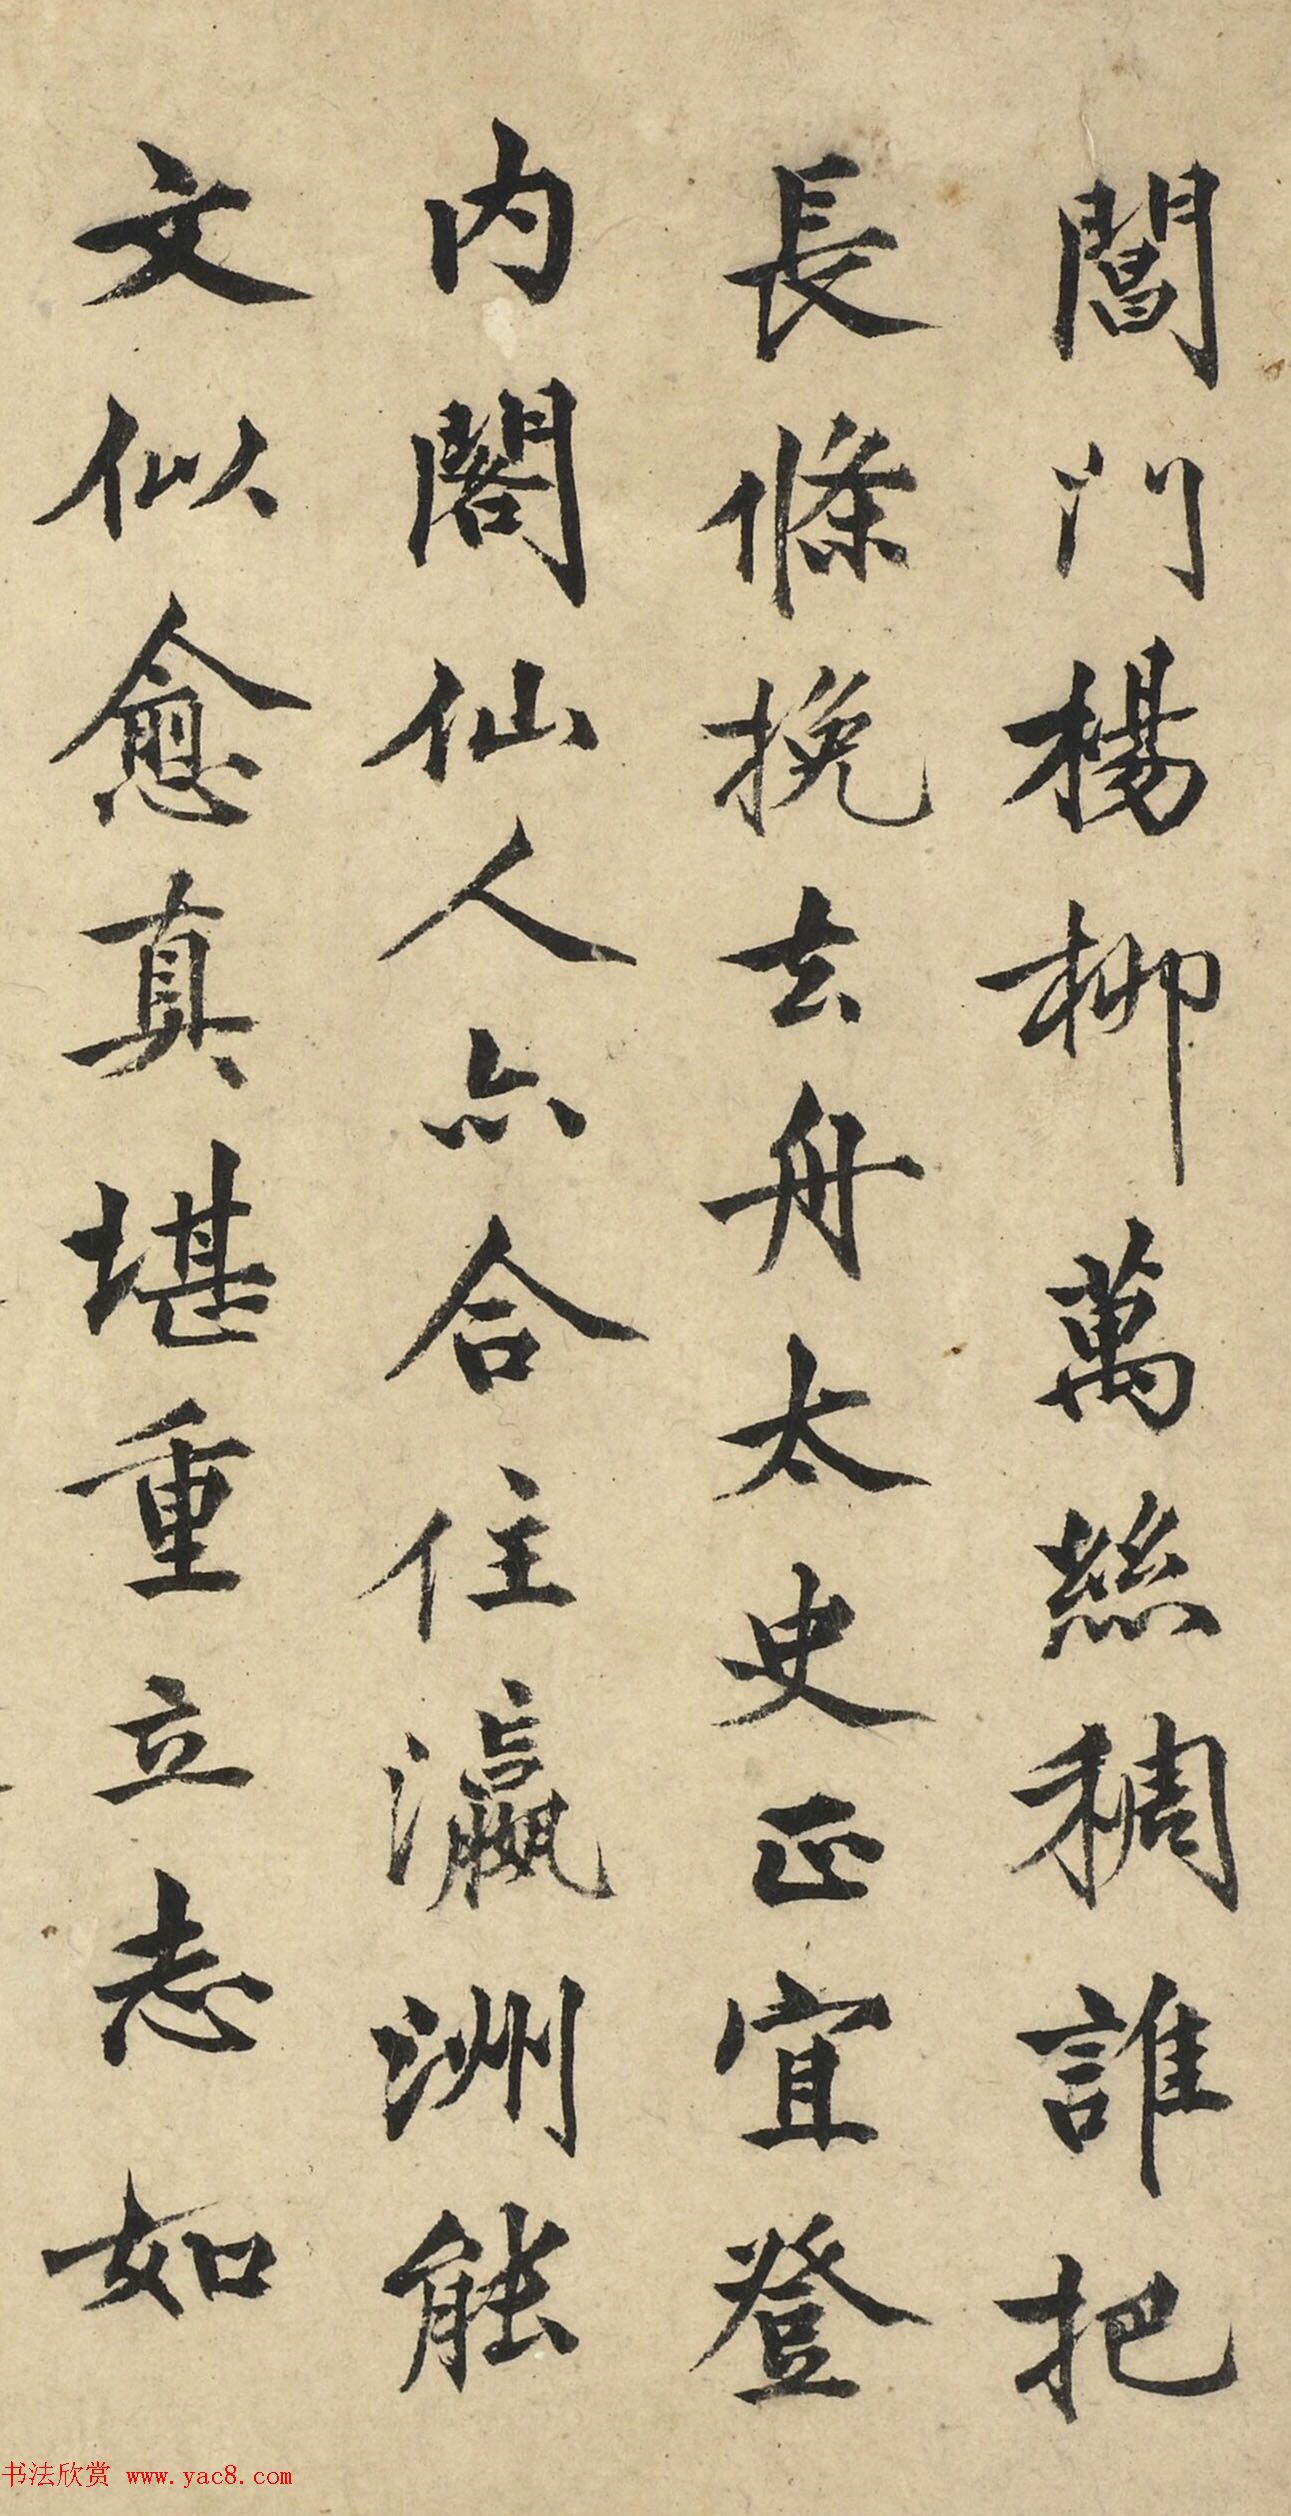 閶門楊柳萬絲稠誰把
長條挽去舟太史正宜登
內閣仙人亦合住瀛洲能
文似愈真堪重立志如
书法欣赏 www.yac8.com